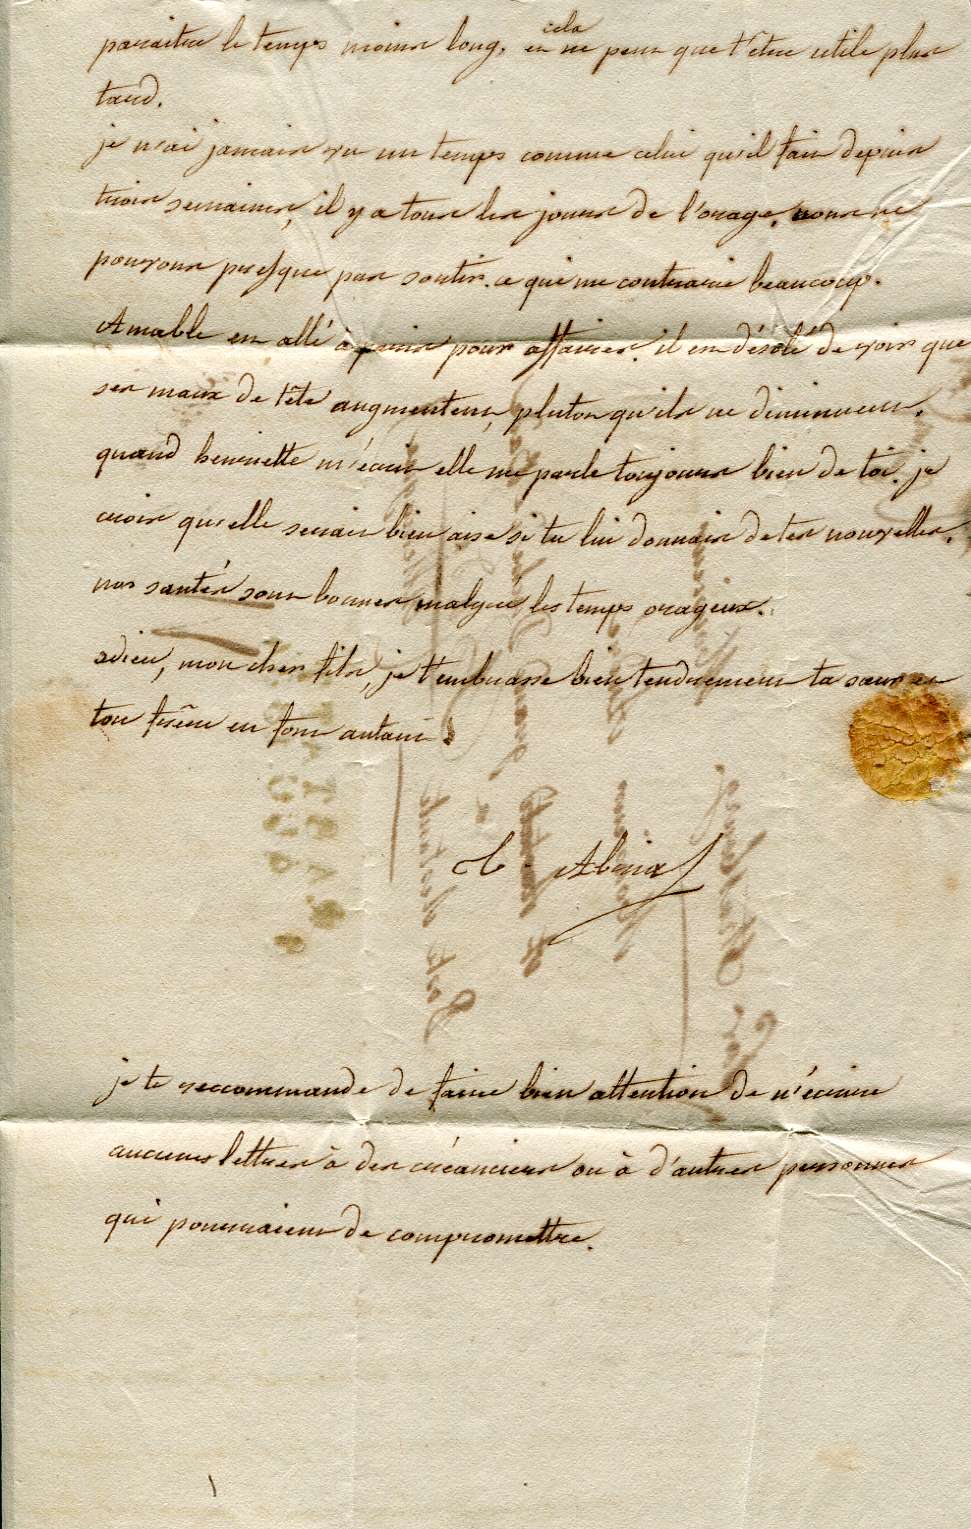 paraitre le temps moins long, et cela ne peut que t'être utile plus
tard.
je n'ai jamais vu un temps comme celui qu'il fait depuis
trois semaines, il y a tous les jours de l'orage. nous ne
pouvons presque pas sortir. ce qui me contrarie beaucoup.
Amable est allé à paris pour affaires. il est désolé de voir que
ses maux de tête augmentent, plutot qu'ils ne diminuent.
quand henriette m'écrit elle me parle toujours bien de toi. je
crois qu'elle serait bien aise si tu lui donnais de tes nouvelles.
nos santés sont bonnes malgré les temps orageux.
adieu, mon cher fils, je t'embrasse bien tendrement ta sœur et
ton frère en font autant.
je te reccommande de faire bien attention de n'écrire
aucunes lettres à des créanciers ou à d'autres personnes
qui pourraient te compromettre.